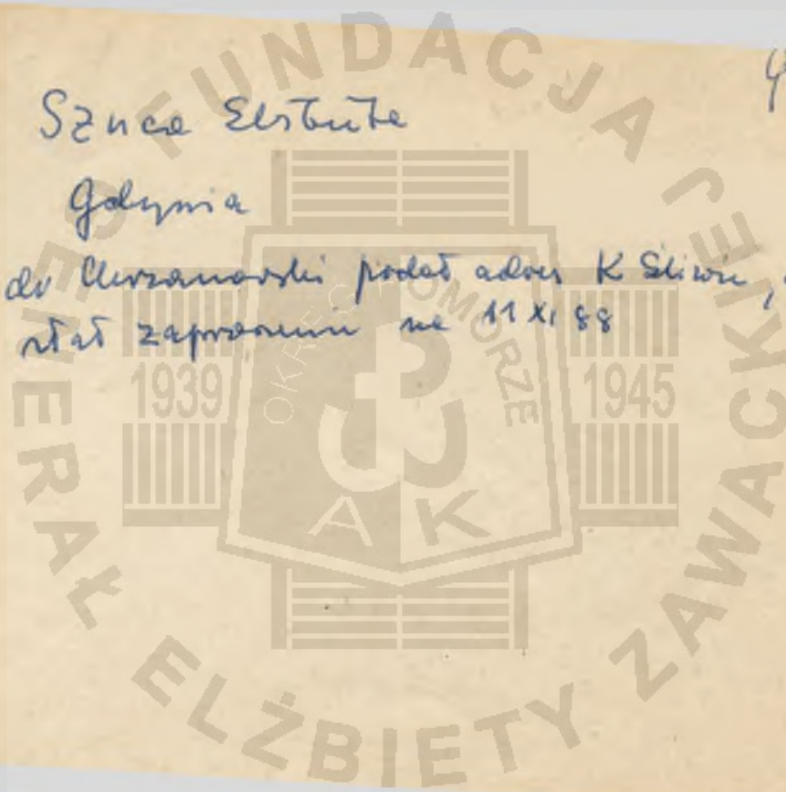 Szuca Elżbieta
Gdynia
dr Chrzanowski podał adres K Śliwie,
stał zaproszenie na 11 XI 88
FUNDACJA GENERAŁ ELŻBIETY ZAWACKIEJ
OKRĘG POMORZE
1939 1945
AK